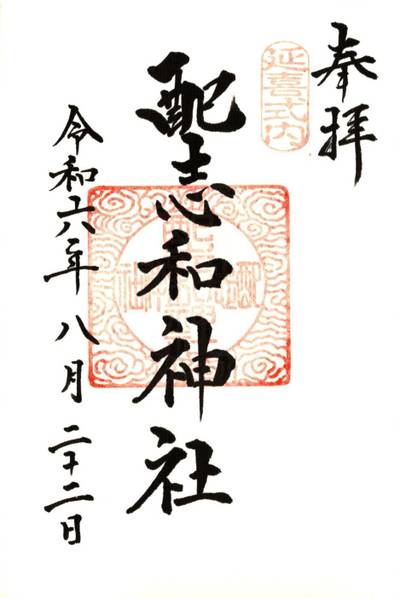 奉拝
延喜式内
配志和神社
令和六年八月二十二日